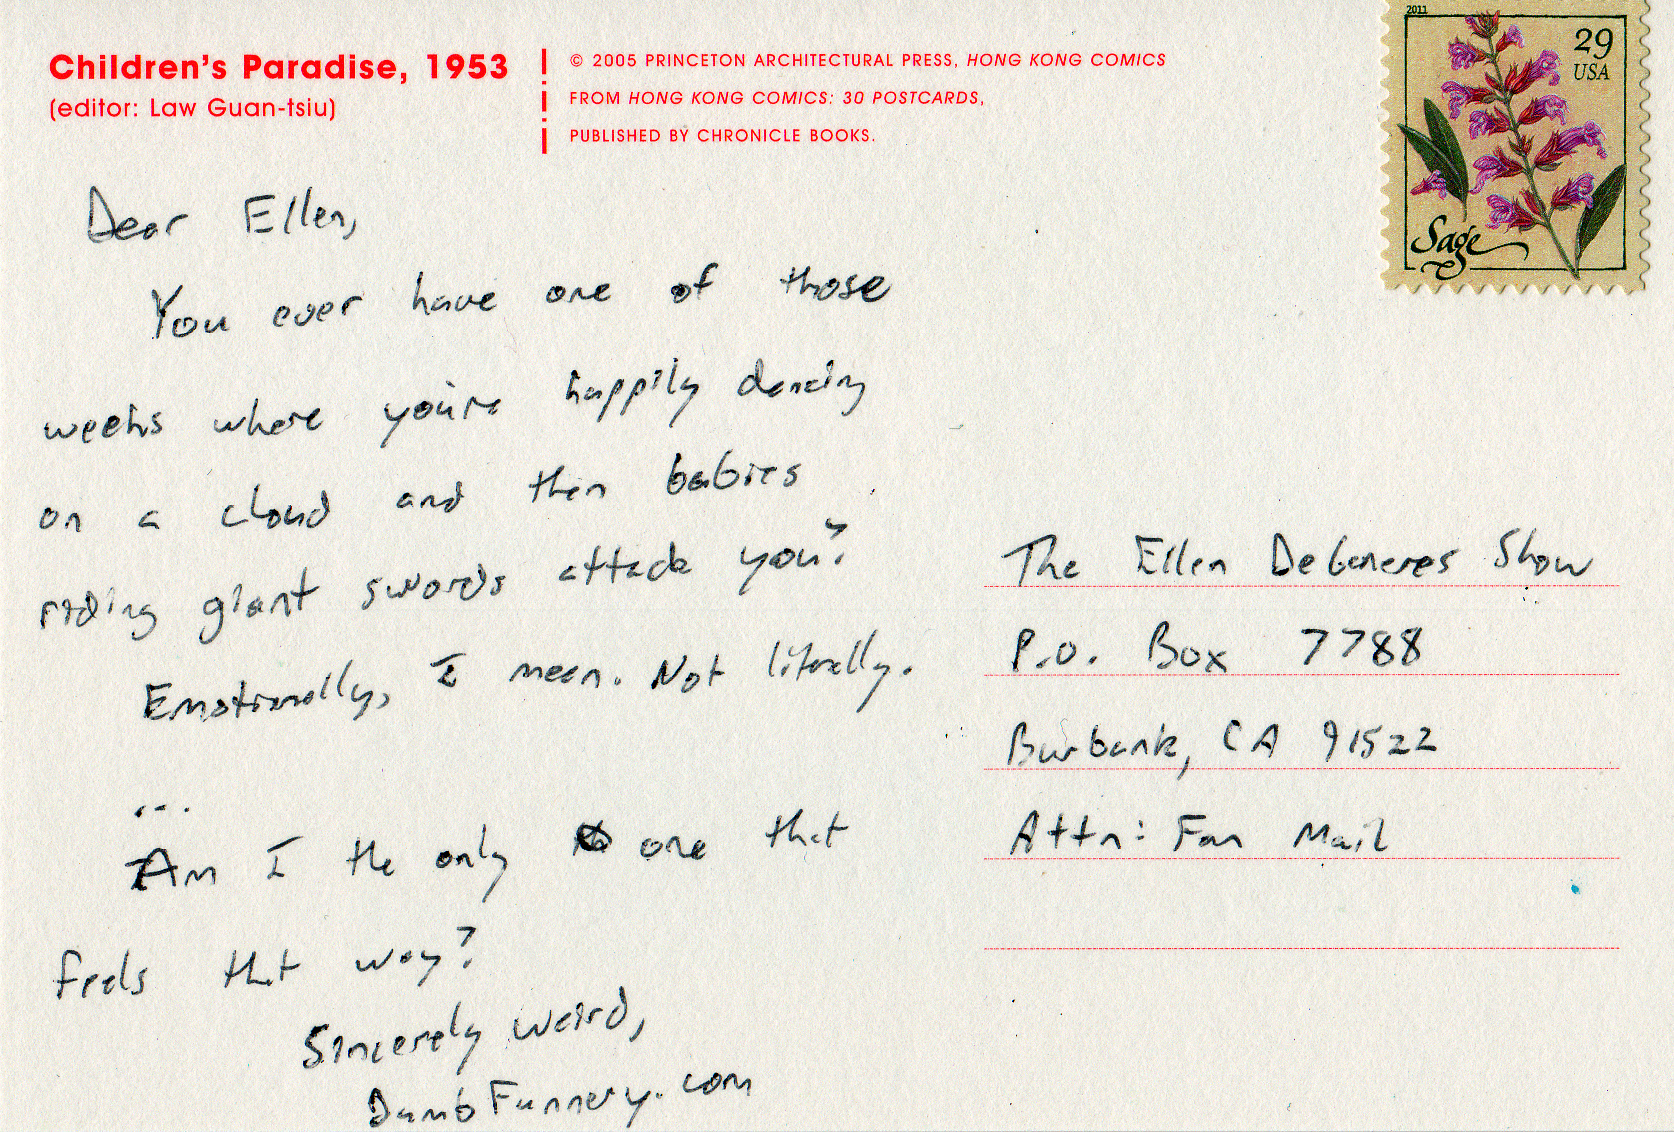 Children's Paradise, 1953
(editor: Law Guan-tsiu)
© 2005 PRINCETON ARCHITECTURAL PRESS, HONG KONG COMICS
FROM HONG KONG COMICS: 30 POSTCARDS,
PUBLISHED BY CHRONICLE BOOKS.
2011
29
USA
Sage
Dear Ellen,
You ever have one of those
weeks where you're happily dancing
on a cloud and then babies
riding giant swords attack you?
Emotionally, I mean. Not literally.
...
Am I the only one that
feels that way?
Sincerely Weird,
DumbFunnery.com
The Ellen DeGeneres Show
P.O. Box 7788
Burbank, CA 91522
Attn: Fan Mail